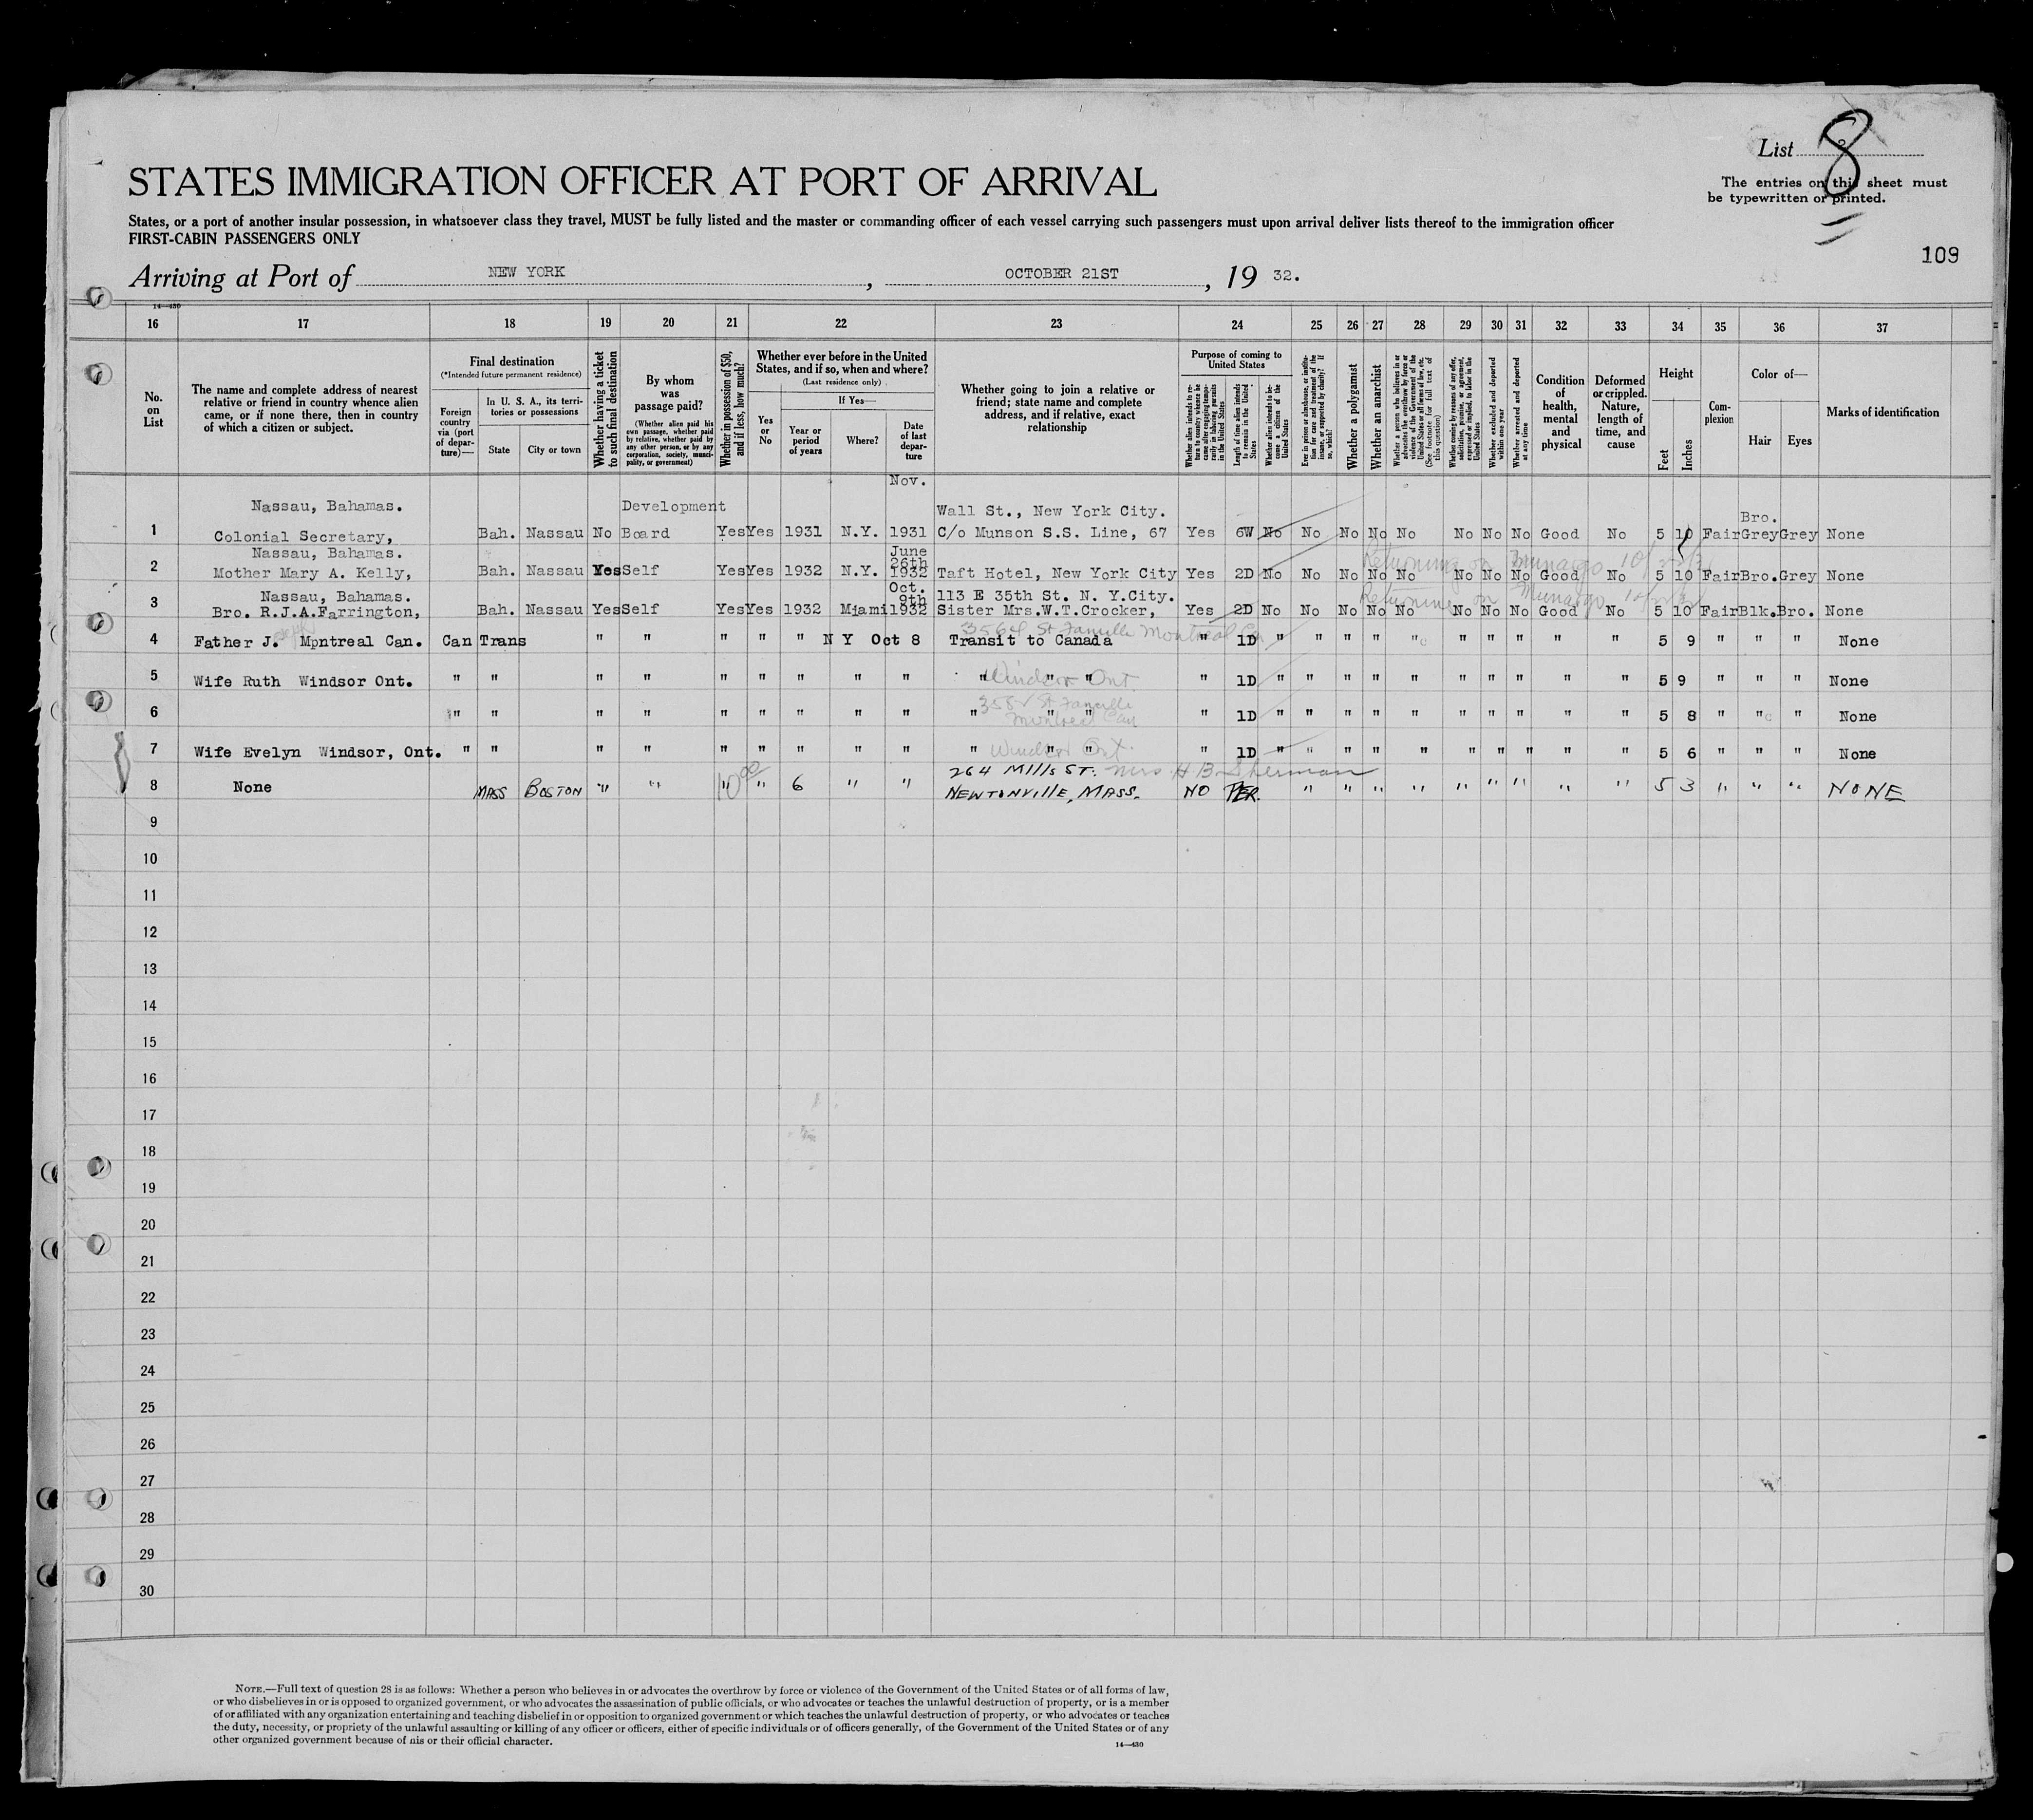 List 8
The entries on this sheet must
be typewritten or printed.
STATES IMMIGRATION OFFICER AT PORT OF ARRIVAL
States, or a port of another insular possession, in whatsoever class they travel, MUST be fully listed and the master or commanding officer of each vessel carrying such passengers must upon arrival deliver lists thereof to the immigration officer
FIRST-CABIN PASSENGERS ONLY
109
Arriving at Port of NEW YORK, OCTOBER 21ST, 19 32.
14—430
16 17 18 19 20 21 22 23 24 25 26 27 28 29 30 31 32 33 34 35 36 37
No. on List
The name and complete address of nearest relative or friend in country whence alien came, or if none there, then in country of which a citizen or subject.
Final destination
(*Intended future permanent residence)
Foreign country via (port of departure)—
In U. S. A., its territories or possessions
State
City or town
Whether having a ticket to such final destination
By whom was passage paid?
(Whether alien paid his own passage, whether paid by relative, whether paid by any other person, or by any corporation, society, municipality, or government)
Whether in possession of $50, and if less, how much?
Whether ever before in the United States, and if so, when and where?
(Last residence only)
Yes or No
If Yes—
Year or period of years
Where?
Date of last departure
Whether going to join a relative or friend; state name and complete address, and if relative, exact relationship
Purpose of coming to United States
Whether alien intends to return to country whence he came after engaging temporarily in laboring pursuits in the United States
Length of time alien intends to remain in the United States
Whether alien intends to become a citizen of the United States
Ever in prison or almshouse, or institution for care and treatment of the insane, or supported by charity? If so, which?
Whether a polygamist
Whether an anarchist
Whether a person who believes in or advocates the overthrow by force or violence of the Government of the United States or all forms of law, etc. (See footnote for full text of this question)
Whether coming by reason of any offer, solicitation, promise, or agreement, expressed or implied, to labor in the United States
Whether excluded and deported within one year
Whether arrested and deported at any time
Condition of health, mental and physical
Deformed or crippled. Nature, length of time, and cause
Height
Feet
Inches
Complexion
Color of—
Hair
Eyes
Marks of identification
Nassau, Bahamas. Development Nov. Wall St., New York City. Bro.
1 Colonial Secretary, Bah. Nassau No Board Yes Yes 1931 N.Y. 1931 C/o Munson S.S. Line, 67 Yes 6W No No No No No No No No Good No 5 10 Fair Grey Grey None
Nassau, Bahamas. June 26th Returning on Munargo
2 Mother Mary A. Kelly, Bah. Nassau Yes Self Yes Yes 1932 N.Y. 1932 Taft Hotel, New York City Yes 2D No No No No No No No No Good No 5 10 Fair Bro. Grey None
Nassau, Bahamas. Oct. 9th 113 E 35th St. N. Y.City. Returning on Munargo
3 Bro. R.J.A.Farrington, Bah. Nassau Yes Self Yes Yes 1932 Miami 1932 Sister Mrs.W.T.Crocker, Yes 2D No No No No No No No No Good No 5 10 Fair Blk. Bro. None
Montreal
4 Father J. Mpntreal Can. Can Trans " " " " " N Y Oct 8 Transit to Canada " 1D " " " " " " " " " " 5 9 " " " None
Windsor Ont
5 Wife Ruth Windsor Ont. " " " " " " " " " " " " " 1D " " " " " " " " " " 5 9 " " " None
Montreal Can
6 " " " " " " " " " " " " " 1D " " " " " " " " " " 5 8 " " " None
Windsor Ont.
7 Wife Evelyn Windsor, Ont. " " " " " " " " " " " " " 1D " " " " " " " " " " 5 6 " " " None
264 Mills ST. Mrs H B Sherman
8 None MASS BOSTON " " 10 00 " 6 " " NEWTONVILLE, MASS. NO PER. " " " " " " " " " 5 3 " " " NONE
9
10
11
12
13
14
15
16
17
18
19
20
21
22
23
24
25
26
27
28
29
30
NOTE.—Full text of question 28 is as follows: Whether a person who believes in or advocates the overthrow by force or violence of the Government of the United States or of all forms of law,
or who disbelieves in or is opposed to organized government, or who advocates the assassination of public officials, or who advocates or teaches the unlawful destruction of property, or is a member
of or affiliated with any organization entertaining and teaching disbelief in or opposition to organized government or which teaches the unlawful destruction of property, or who advocates or teaches
the duty, necessity, or propriety of the unlawful assaulting or killing of any officer or officers, either of specific individuals or of officers generally, of the Government of the United States or of any
other organized government because of his or their official character.
14—430